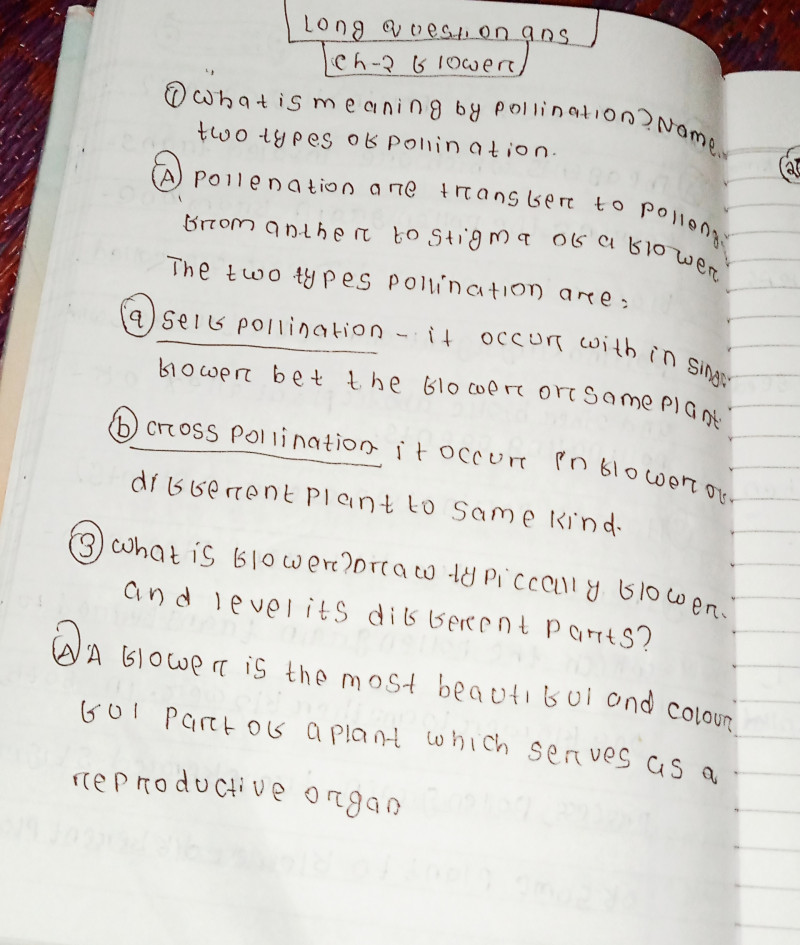 Long question ans
ch-2 flower
① What is meaning by pollination? Name
two types of pollination.
Ⓐ pollenation are transfer to polleng
from anther to stigma of a flower
The two types pollination are:
ⓐ self pollination - it occur with in singe
flower bet the flower or same plant
ⓑ cross pollination it occur in flower of
different plant to same kind.
③ what is flower? Draw typiccally flower.
and level its different parts?
Ⓐ A flower is the most beautiful and colour
ful part of a plant which serves as a
reproductive organ